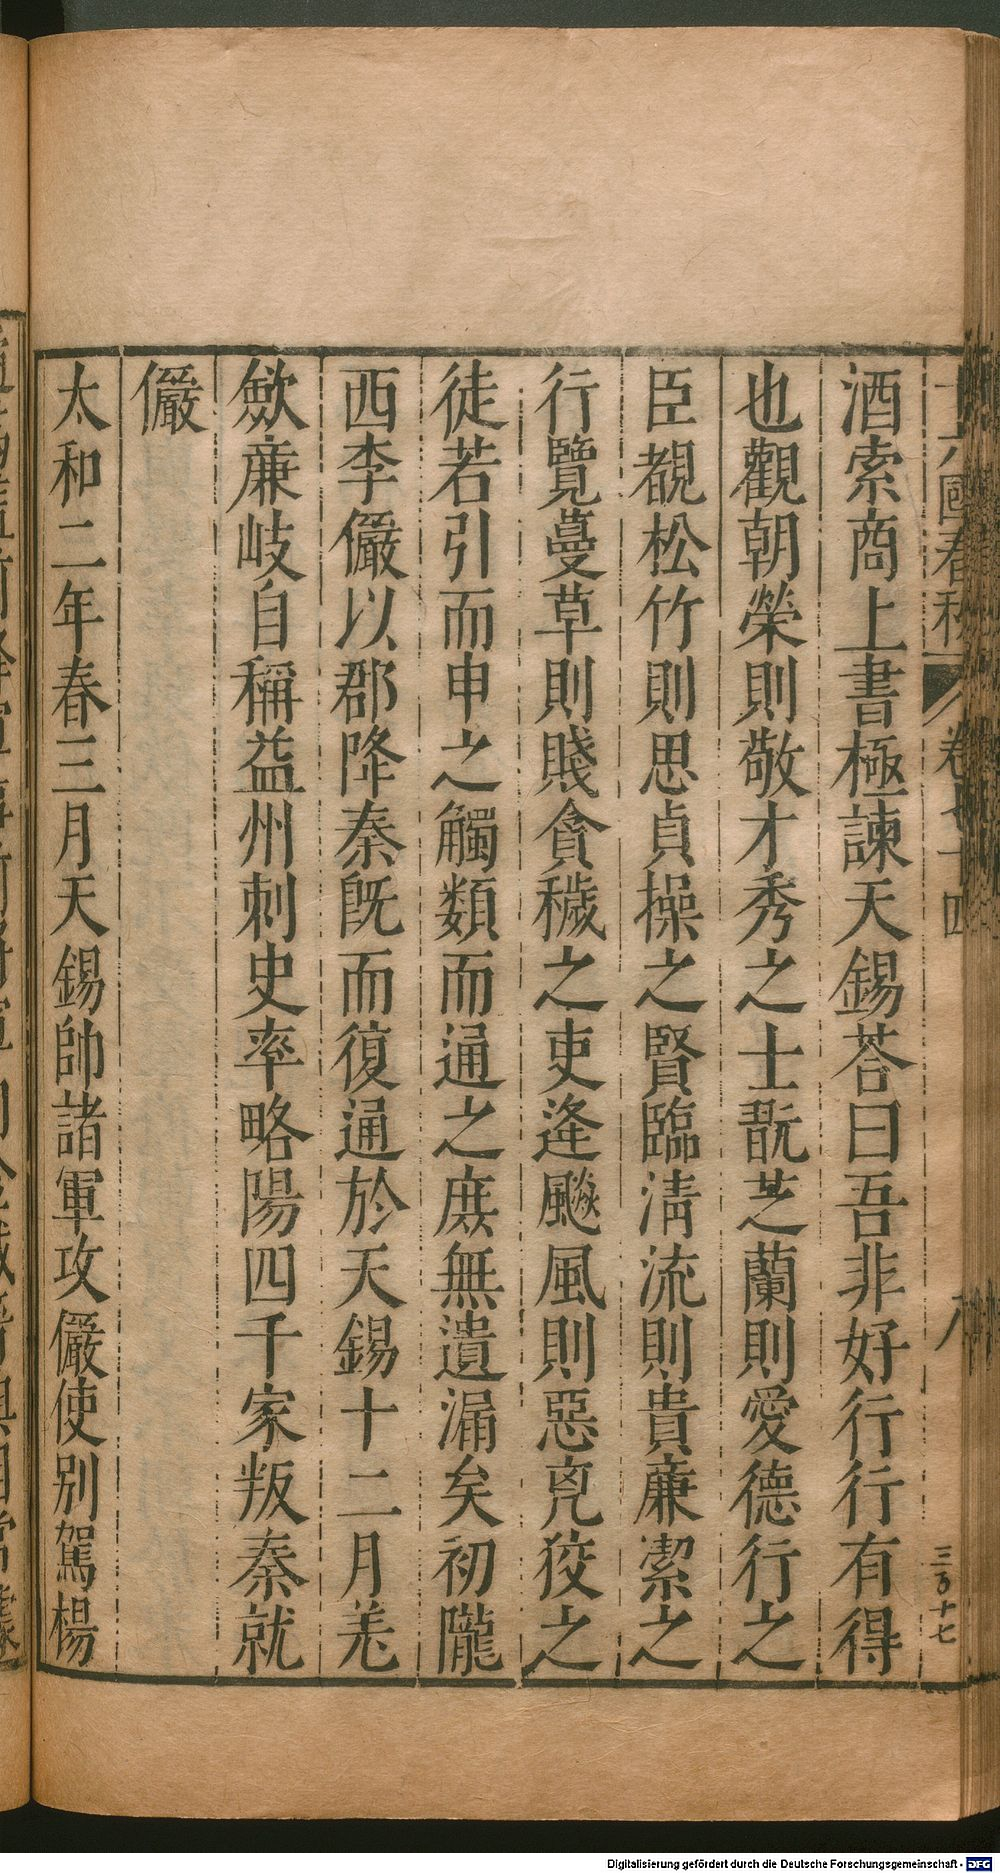 十六國春秋 卷七十四 八
三百十七
酒索商上書極諫天錫荅曰吾非好行行有得
也觀朝榮則敬才秀之士翫芝蘭則愛德行之
臣覩松竹則思貞操之賢臨淸流則貴廉潔之
行覽蔓草則賤貪穢之吏逄飈風則惡兇狡之
徒若引而申之觸類而通之庶無遺漏矣初隴
西李儼以郡降秦旣而復通於天錫十二月羌
斂廉岐自稱益州刺史率略陽四千家叛秦就
儼
太和二年春三月天錫帥諸軍攻儼使別駕楊
Digitalisierung gefördert durch die Deutsche Forschungsgemeinschaft - DFG